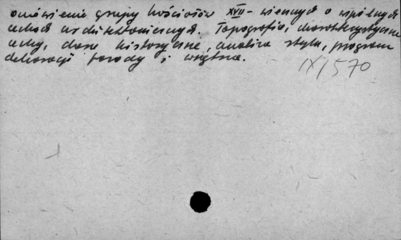 omówienie grupy kościołów XVII-wiecznych o wspólnych
cechach architektonicznych. Topografia, charakterystyczne
cechy, dane historyczne, analiza stylu, program
dekoracji fasady i wnętrza.
IX/570